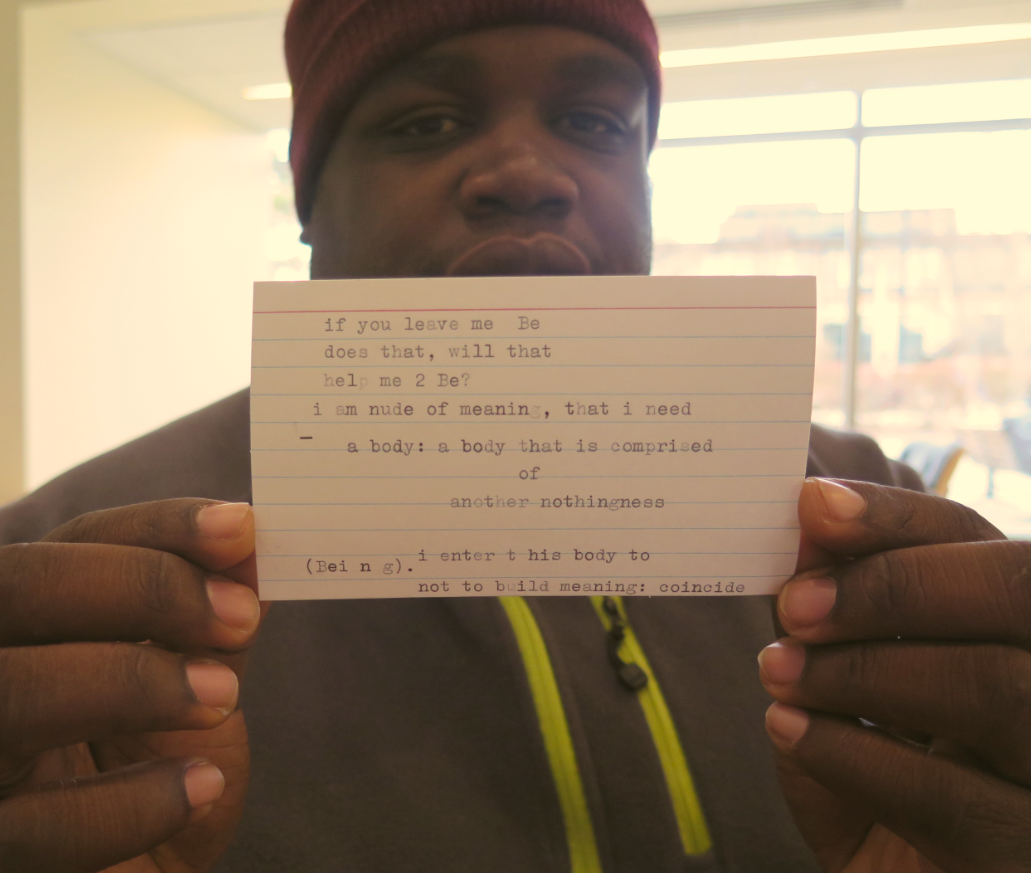 if you leave me  Be
does that, will that
help me 2 Be?
i am nude of meaning, that i need
— a body: a body that is comprised
of
another nothingness
(Bei n g). i enter t his body to
not to build meaning: coincide